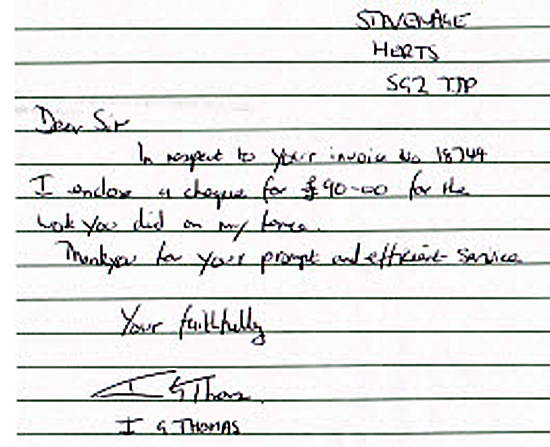 STEVENAGE
HERTS
SG2 7JP
Dear Sir
In respect to your invoice No 18749
I enclose a cheque for £90-00 for the
work you did on my fence.
Thankyou for your prompt and efficient service
Your faithfully
I G Thomas
I G THOMAS